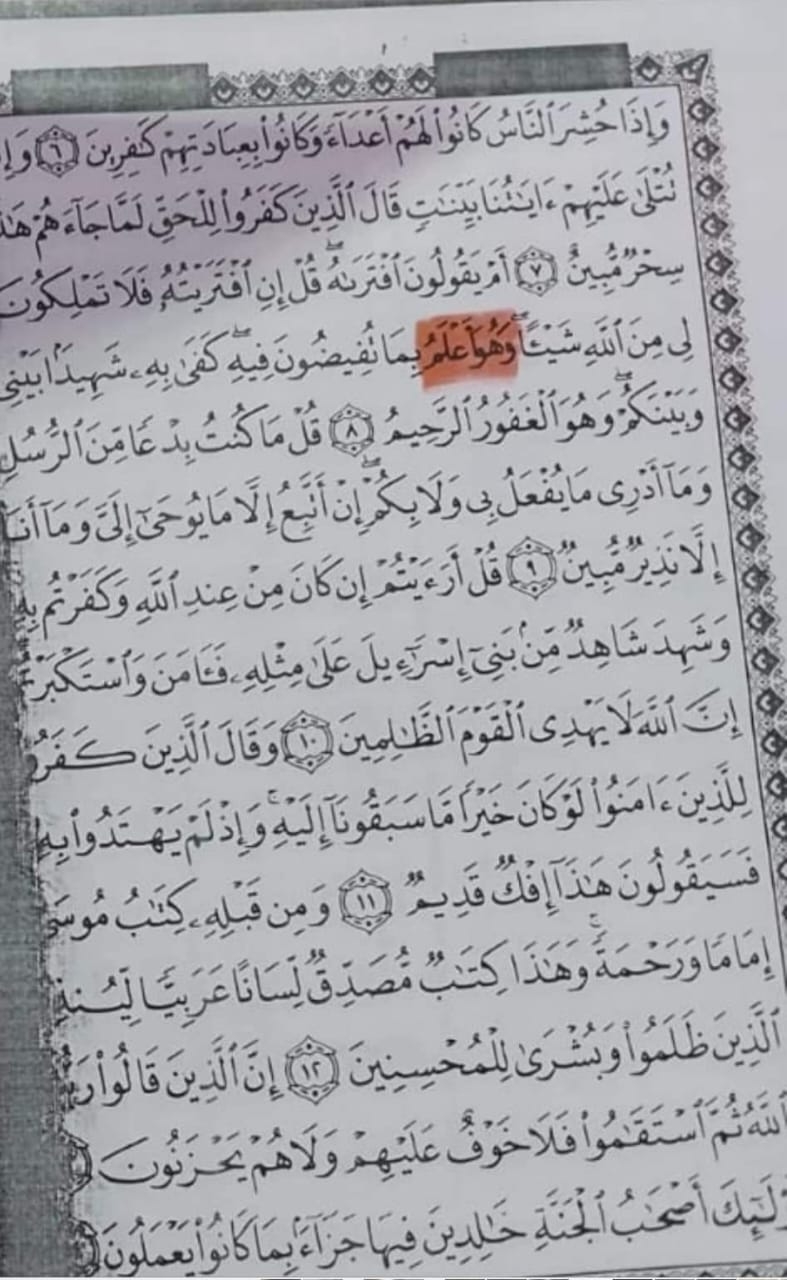 وَإِذَا حُشِرَ ٱلنَّاسُ كَانُوا۟ لَهُمْ أَعْدَآءً وَكَانُوا۟ بِعِبَادَتِهِمْ كَٰفِرِينَ ٦
تُتْلَىٰ عَلَيْهِمْ ءَايَٰتُنَا بَيِّنَٰتٍ قَالَ ٱلَّذِينَ كَفَرُوا۟ لِلْحَقِّ لَمَّا جَآءَهُمْ
سِحْرٌ مُّبِينٌ ٧ أَمْ يَقُولُونَ ٱفْتَرَىٰهُ ۖ قُلْ إِنِ ٱفْتَرَيْتُهُۥ فَلَا تَمْلِكُونَ
لِى مِنَ ٱللَّهِ شَيْـًٔا ۖ وَهُوَ أَعْلَمُ بِمَا تُفِيضُونَ فِيهِ ۖ كَفَىٰ بِهِۦ شَهِيدًۢا بَيْنِى
وَبَيْنَكُمْ ۖ وَهُوَ ٱلْغَفُورُ ٱلرَّحِيمُ ٨ قُلْ مَا كُنتُ بِدْعًا مِّنَ ٱلرُّسُلِ
وَمَآ أَدْرِى مَا يُفْعَلُ بِى وَلَا بِكُمْ ۖ إِنْ أَتَّبِعُ إِلَّا مَا يُوحَىٰٓ إِلَىَّ وَمَآ أَنَا۠
إِلَّا نَذِيرٌ مُّبِينٌ ٩ قُلْ أَرَءَيْتُمْ إِن كَانَ مِنْ عِندِ ٱللَّهِ وَكَفَرْتُم بِهِ
وَشَهِدَ شَاهِدٌ مِّنۢ بَنِىٓ إِسْرَٰٓءِيلَ عَلَىٰ مِثْلِهِۦ فَـَٔامَنَ وَٱسْتَكْبَرْتُمْ
إِنَّ ٱللَّهَ لَا يَهْدِى ٱلْقَوْمَ ٱلظَّٰلِمِينَ ١٠ وَقَالَ ٱلَّذِينَ كَفَرُ
لِلَّذِينَ ءَامَنُوا۟ لَوْ كَانَ خَيْرًا مَّا سَبَقُونَآ إِلَيْهِ ۚ وَإِذْ لَمْ يَهْتَدُوا۟ بِهِ
فَسَيَقُولُونَ هَٰذَآ إِفْكٌ قَدِيمٌ ١١ وَمِن قَبْلِهِۦ كِتَٰبُ مُوسَى
إِمَامًا وَرَحْمَةً ۚ وَهَٰذَا كِتَٰبٌ مُّصَدِّقٌ لِّسَانًا عَرَبِيًّا
ٱلَّذِينَ ظَلَمُوا۟ وَبُشْرَىٰ لِلْمُحْسِنِينَ ١٢ إِنَّ ٱلَّذِينَ قَالُوا۟
ٱللَّهُ ثُمَّ ٱسْتَقَٰمُوا۟ فَلَا خَوْفٌ عَلَيْهِمْ وَلَا هُمْ يَحْزَنُونَ
أَصْحَٰبُ ٱلْجَنَّةِ خَٰلِدِينَ فِيهَا جَزَآءًۢ بِمَا كَانُوا۟ يَعْمَلُونَ